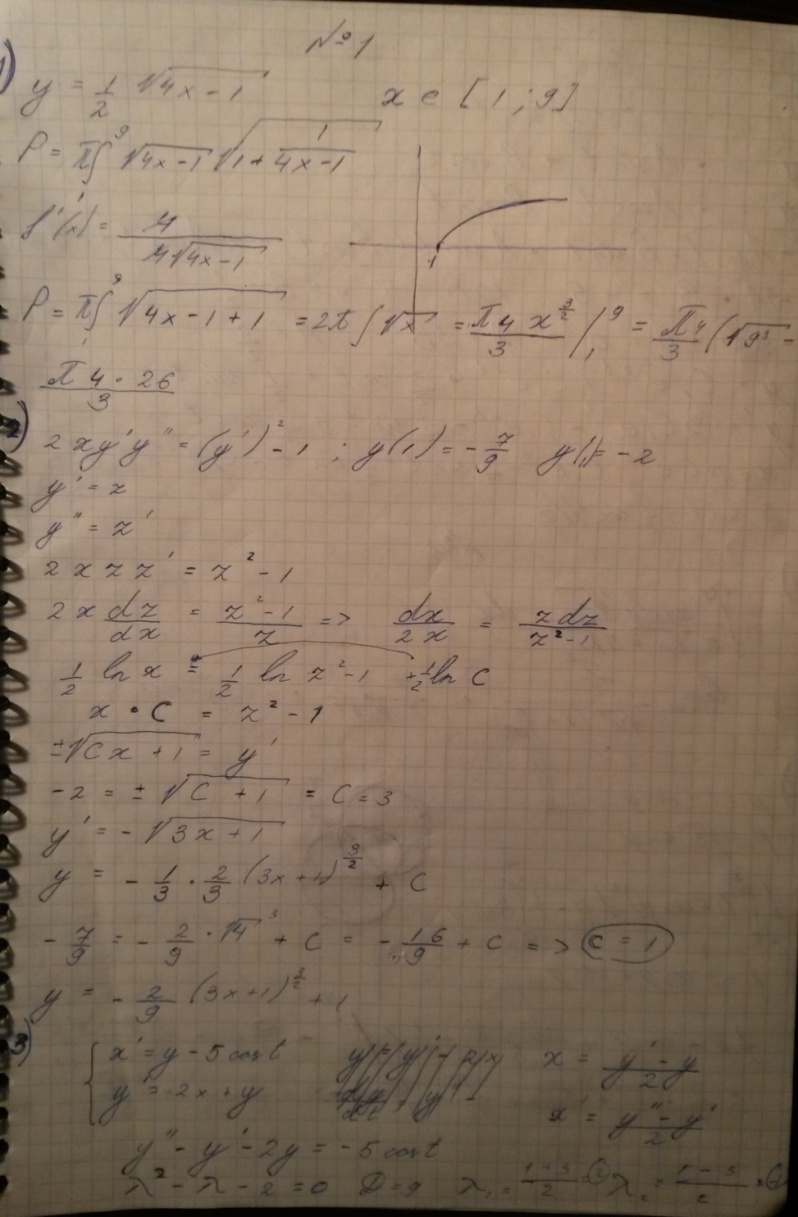 №1
1) y = 1/2 √(4x-1)    x ∈ [1; 9]
P = π∫₁⁹ √(4x-1) √(1 + 1/(4x-1))
f'(x) = 4/(4√(4x-1))
1
P = π∫₁⁹ √(4x-1+1) = 2π∫√x = π4 x^(3/2)/3 |₁⁹ = π4/3 (√9³ -
π4·26/3
2) 2xy'y'' = (y')² - 1 ; y(1) = -7/9   y'(1) = -2
y' = z
y'' = z'
2xzz' = z² - 1
2x dz/dx = (z²-1)/z => dx/2x = zdz/(z²-1)
1/2 ln x = 1/2 ln z²-1 + 1/2 ln C
x · C = z² - 1
±√(Cx+1) = y'
-2 = ±√(C+1) = C = 3
y' = -√(3x+1)
y = -1/3 · 2/3 (3x+1)^(3/2) + C
-7/9 = -2/9 · √4³ + C = -16/9 + C => C = 1
y = -2/9 (3x+1)^(3/2) + 1
3) { x' = y - 5cost    x = (y'-y)/2
y' = 2x + y    x' = (y''-y')/2
y'' - y' - 2y = -5cost
λ² - λ - 2 = 0   D = 9   λ₁ =   λ₂ =